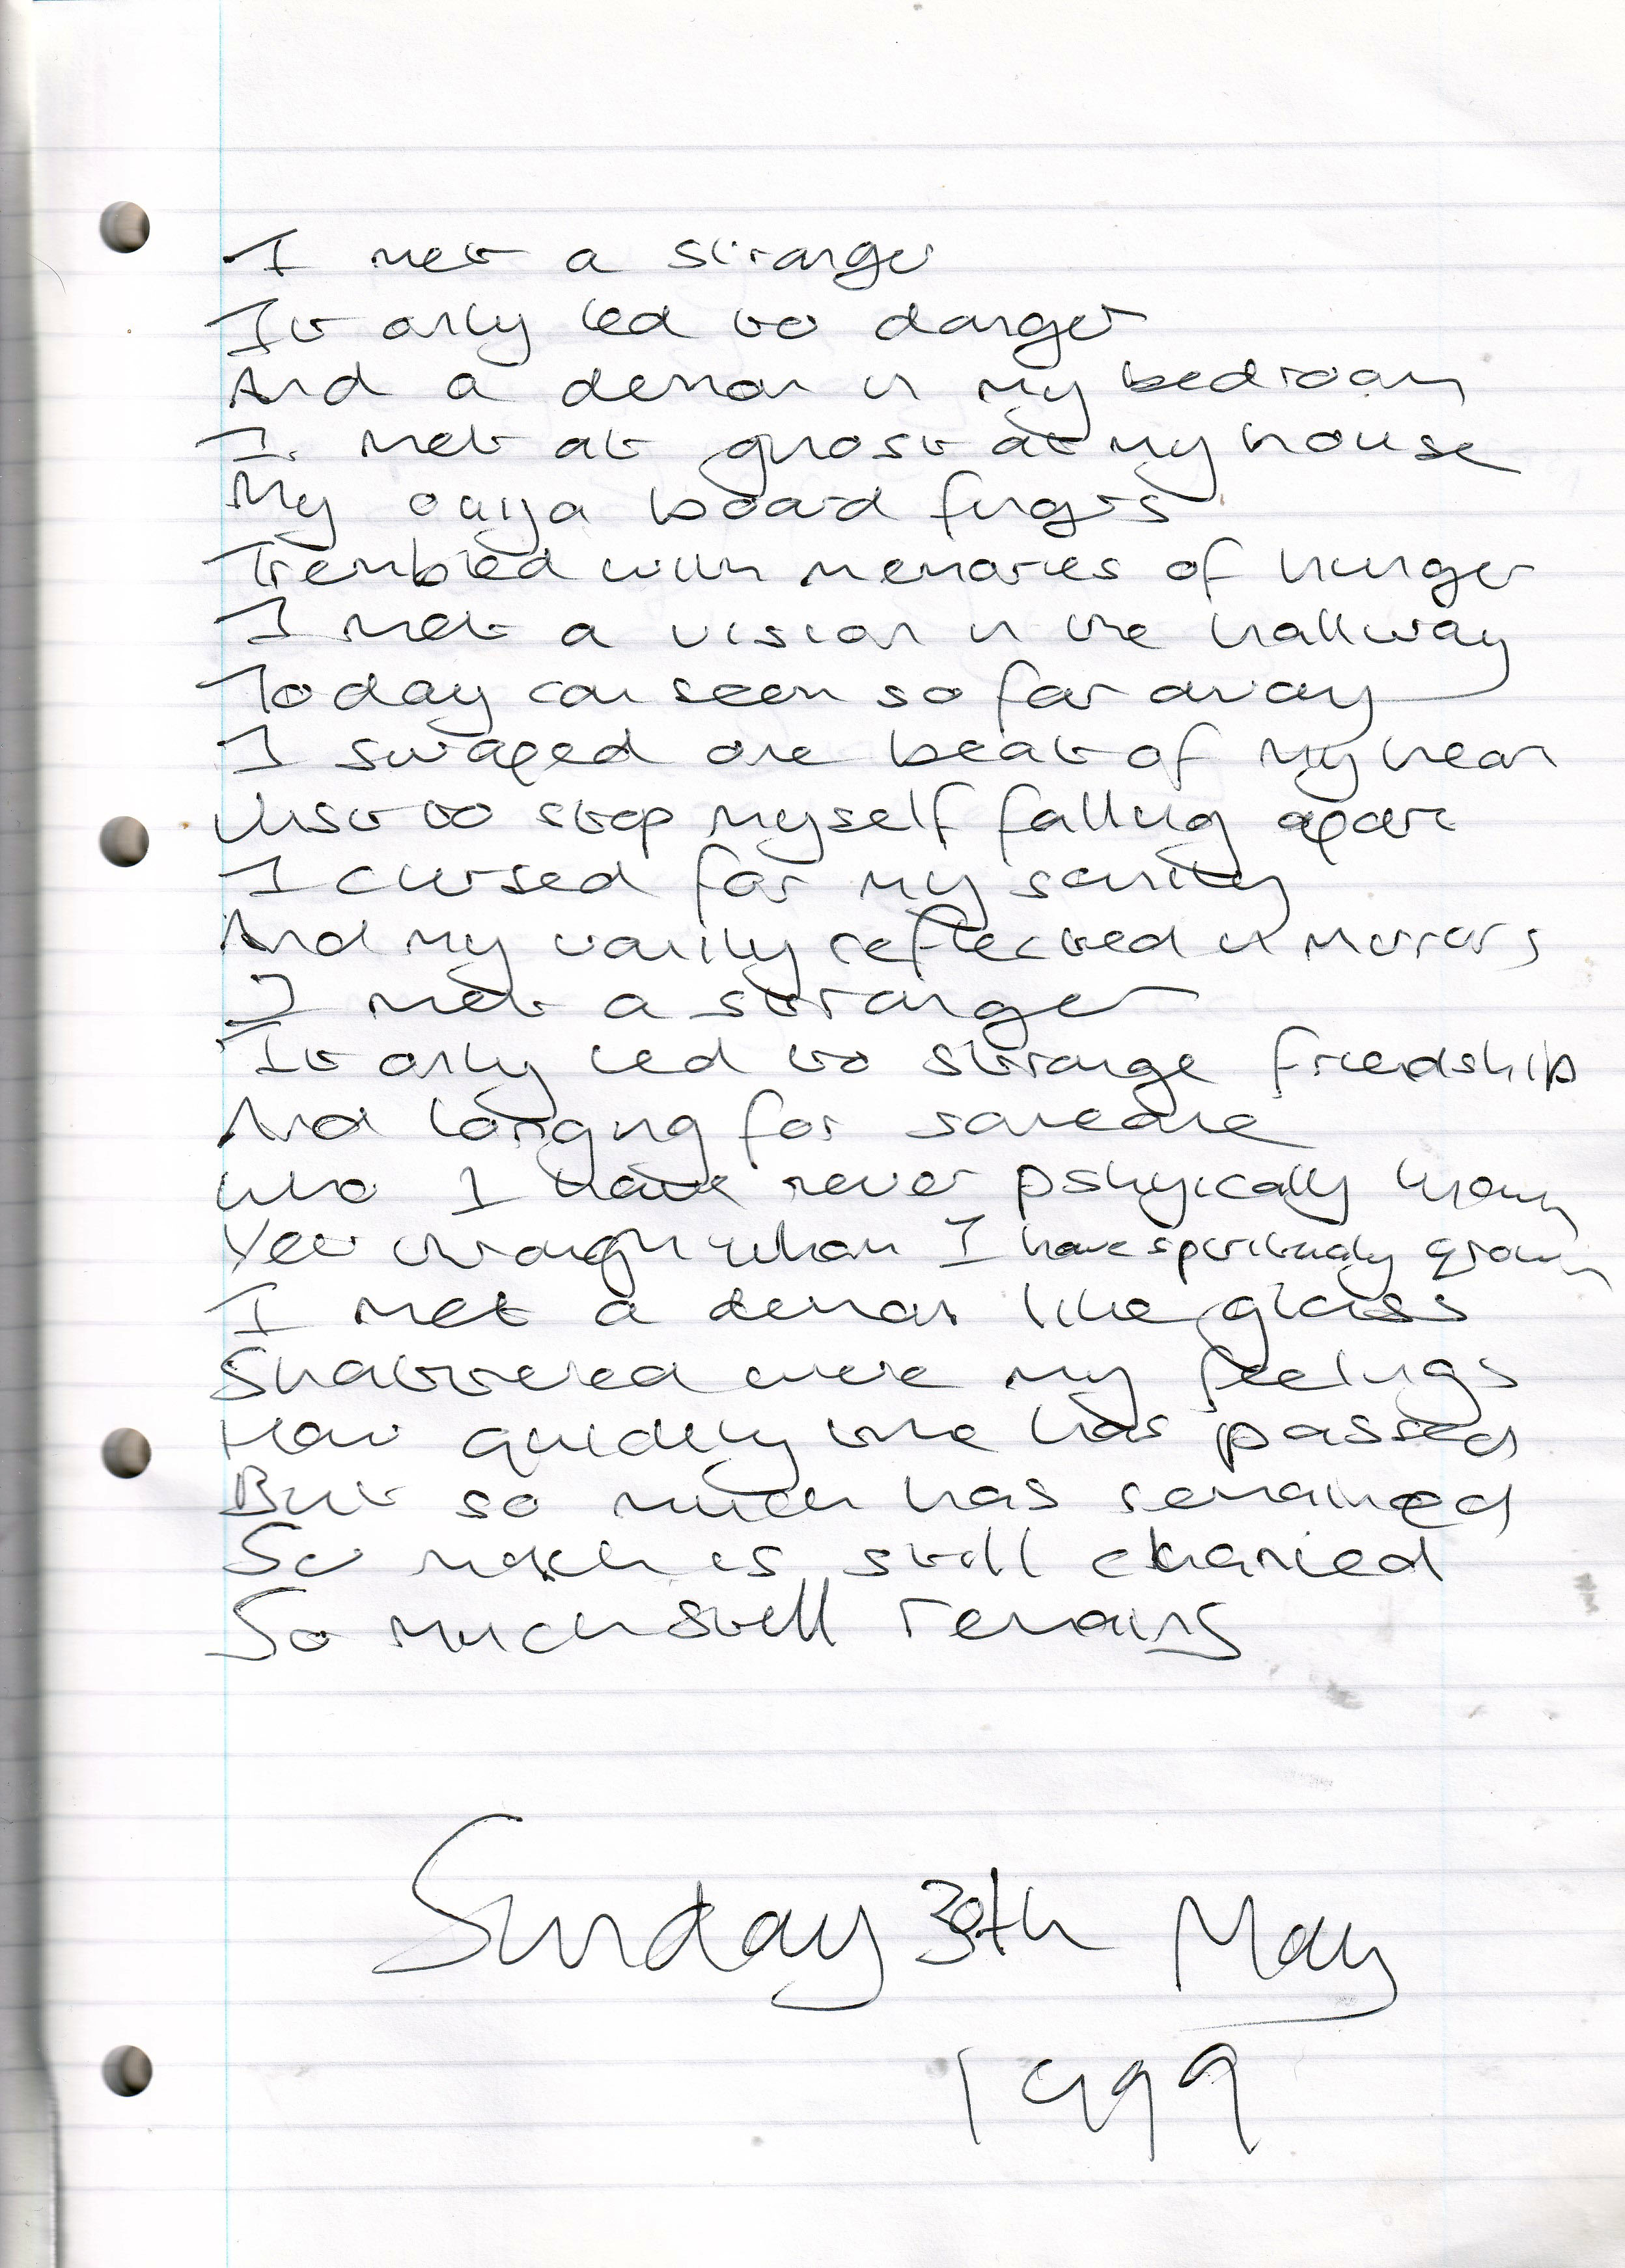 I met a stranger
It only led to danger
And a demon in my bedroom
I met at ghost at my house
My ouija board fingers
Trembled with memories of hunger
I met a vision in the hallway
Today can seem so far away
I swaped one beat of my heart
Just to stop myself falling apart
I cursed for my sanity
And my vanity reflected in mirrors
I met a stranger
It only led to strange friendship
And longing for someone
Who I have never pshyically known
Yet through whom I have spiritually grown
I met a demon like glass
Shattered were my feelings
How quickly time has passed
But so much has remained
So much is still chained
So much still remains
Sunday 30th May
1999